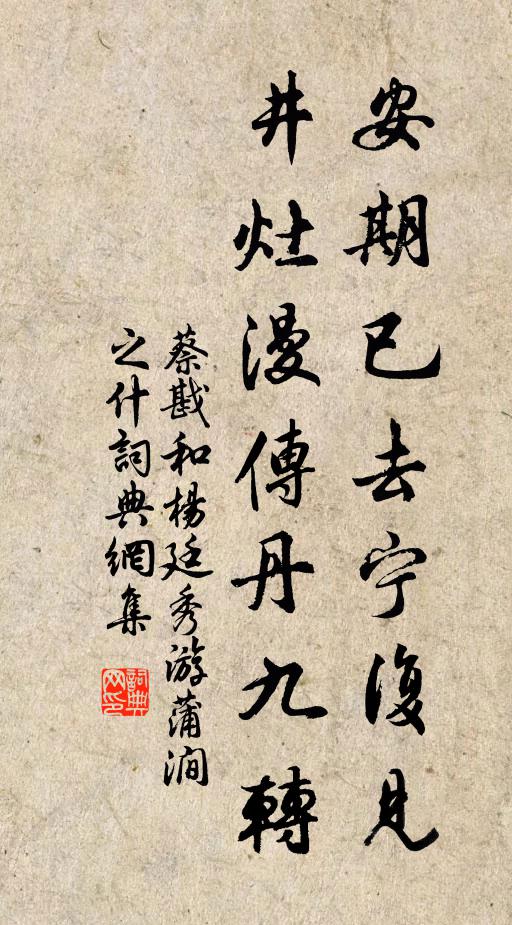 安期已去宁復見
井灶漫傳丹九轉
蔡戡和楊廷秀游蒲澗
之什詞典網集
詞典网印